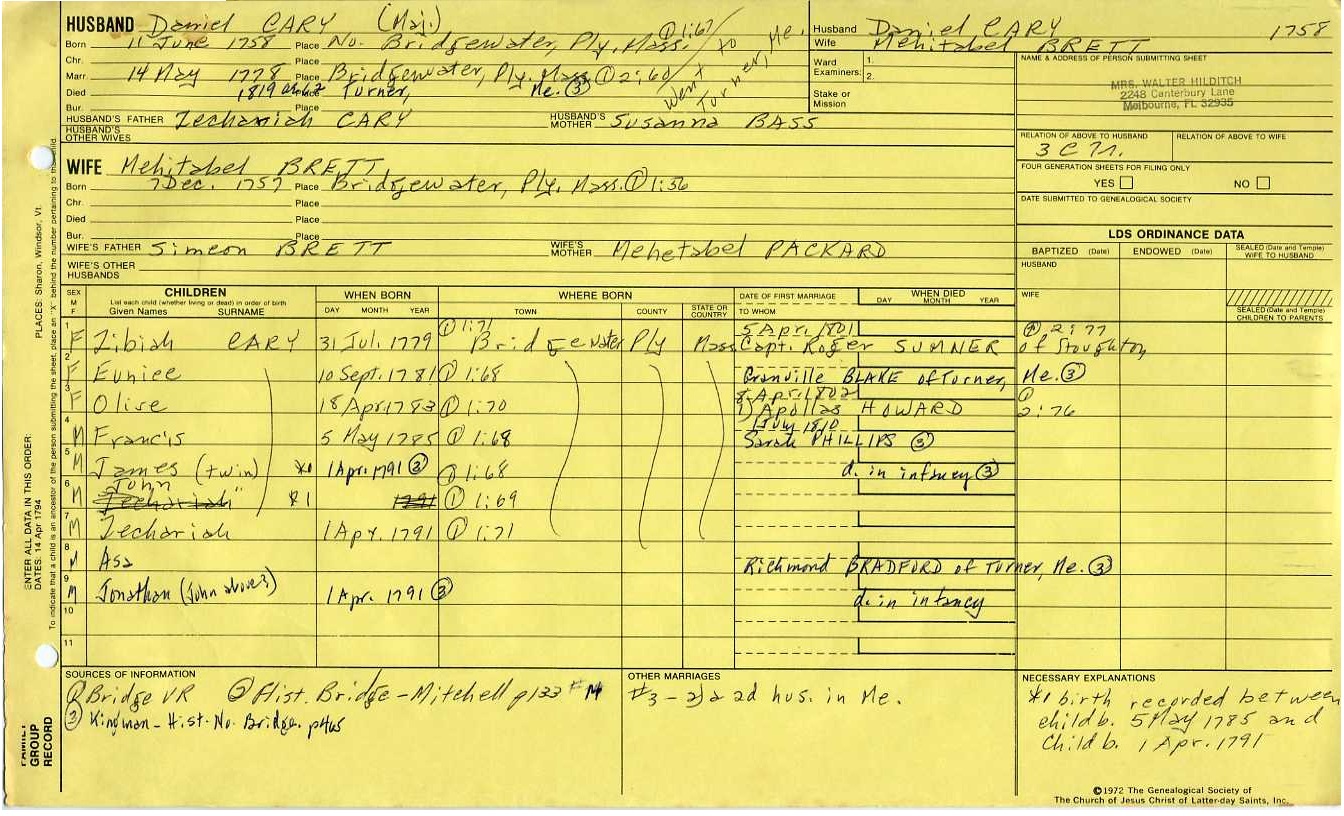 HUSBAND Daniel CARY (Maj.)
Born 11 June 1758 Place No. Bridgewater, Ply, Mass. ① 1:67
Chr. Place
Marr. 14 May 1778 Place Bridgewater, Ply, Mass ① 2:60
Died 1819 Place Turner, Me. ③
went to Turner, Me.
Bur. Place
HUSBAND'S FATHER Zechariah CARY HUSBAND'S MOTHER Susanna BASS
HUSBAND'S OTHER WIVES
Husband Daniel CARY 1758
Wife Mehitabel BRETT
Ward Examiners: 1. 2.
Stake or Mission
NAME & ADDRESS OF PERSON SUBMITTING SHEET
MRS. WALTER HILDITCH
2248 Canterbury Lane
Melbourne, FL 32935
RELATION OF ABOVE TO HUSBAND RELATION OF ABOVE TO WIFE
FOUR GENERATION SHEETS FOR FILING ONLY
YES NO
DATE SUBMITTED TO GENEALOGICAL SOCIETY
WIFE Mehitabel BRETT
Born 7 Dec. 1757 Place Bridgewater, Ply, Mass. ① 1:56
Chr. Place
Died Place
Bur. Place
WIFE'S FATHER Simeon BRETT WIFE'S MOTHER Mehetabel PACKARD
WIFE'S OTHER HUSBANDS
LDS ORDINANCE DATA
BAPTIZED (Date) ENDOWED (Date) SEALED (Date and Temple) WIFE TO HUSBAND
HUSBAND
WIFE
SEALED (Date and Temple) CHILDREN TO PARENTS
SEX M F CHILDREN List each child (whether living or dead) in order of birth Given Names SURNAME
WHEN BORN DAY MONTH YEAR
WHERE BORN TOWN COUNTY STATE OR COUNTRY
DATE OF FIRST MARRIAGE TO WHOM
WHEN DIED DAY MONTH YEAR
1 F Zibiah CARY 31 Jul. 1779 ① 1:71 Bridgewater Ply Mass 5 Apr. 1801 Capt. Roger SUMNER of Stoughton ① 2:77
2 F Eunice 10 Sept. 1781 ① 1:68 Granville BLAKE of Turner, Me. ③
3 F Olive 18 Apr 1783 ① 1:70 8 April 1802 1) Apollas HOWARD ① 2:76
4 M Francis 5 May 1785 ① 1:68 1 July 1810 Sarah PHILLIPS ③
5 M James (twin) *1 1 Apr. 1791 ③ ① 1:68 d. in infancy ③
6 M John Zechariah *1 1791 ① 1:69
7 M Zechariah 1 Apr. 1791 ① 1:71
8 M Asa Richmond BRADFORD of Turner, Me. ③
9 M Jonathan (John above?) 1 Apr. 1791 ③ d. in infancy
10
11
SOURCES OF INFORMATION
① Bridge VR ② Hist. Bridge - Mitchell p133 #14
③ Kingman - Hist. No. Bridge. p465
OTHER MARRIAGES
#3 - 2) a 2d hus. in Me.
NECESSARY EXPLANATIONS
*1 birth recorded between
child b. 5 May 1785 and
child b. 1 Apr. 1791
©1972 The Genealogical Society of
The Church of Jesus Christ of Latter-day Saints, Inc.
PLACES: Sharon, Windsor, Vt.
ENTER ALL DATA IN THIS ORDER:
DATES: 14 Apr 1794
To indicate that a child is an ancestor of the person submitting the sheet, place an "X" behind the number pertaining to that child.
FAMILY GROUP RECORD